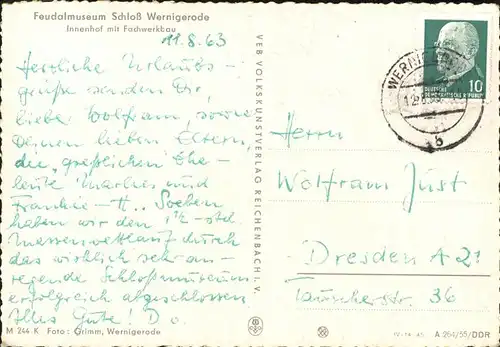 Feudalmuseum Schloß Wernigerode
Innenhof mit Fachwerkbau
11.8.63
Herzliche Urlaubs-
grüße senden Dir,
lieber Wolfram, sowie
Deinen lieben Eltern,
die "gräßlichen" Ehe-
leute Marlies und
Frankie-H.. Soeben
haben wir den 1½-std.
Massenwettlauf durch
das wirklich sehr an-
regende Schloßmuseum
erfolgreich abgeschlossen.
Alles Gute! D.o.
M 244 K Foto: Grimm, Wernigerode
VEB VOLKSKUNSTVERLAG REICHENBACH i. V.
WERNIGE
10
DEUTSCHE
DEMOKRATISCHE REPUBLIK
b
Herrn
Wolfram Just
Dresden A 21
Tauscherstr. 36
A 264/55/DDR